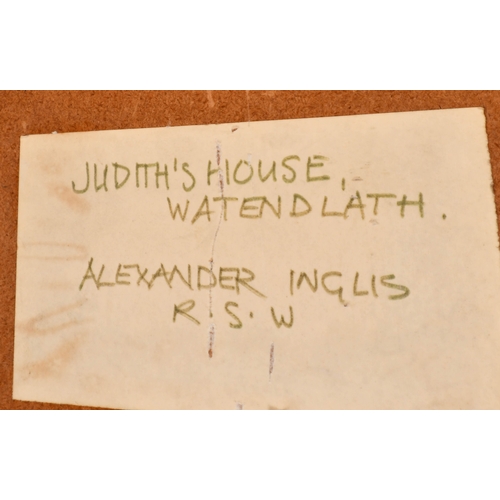 JUDITH'S HOUSE,
WATENDLATH.
ALEXANDER INGLIS
R S. W